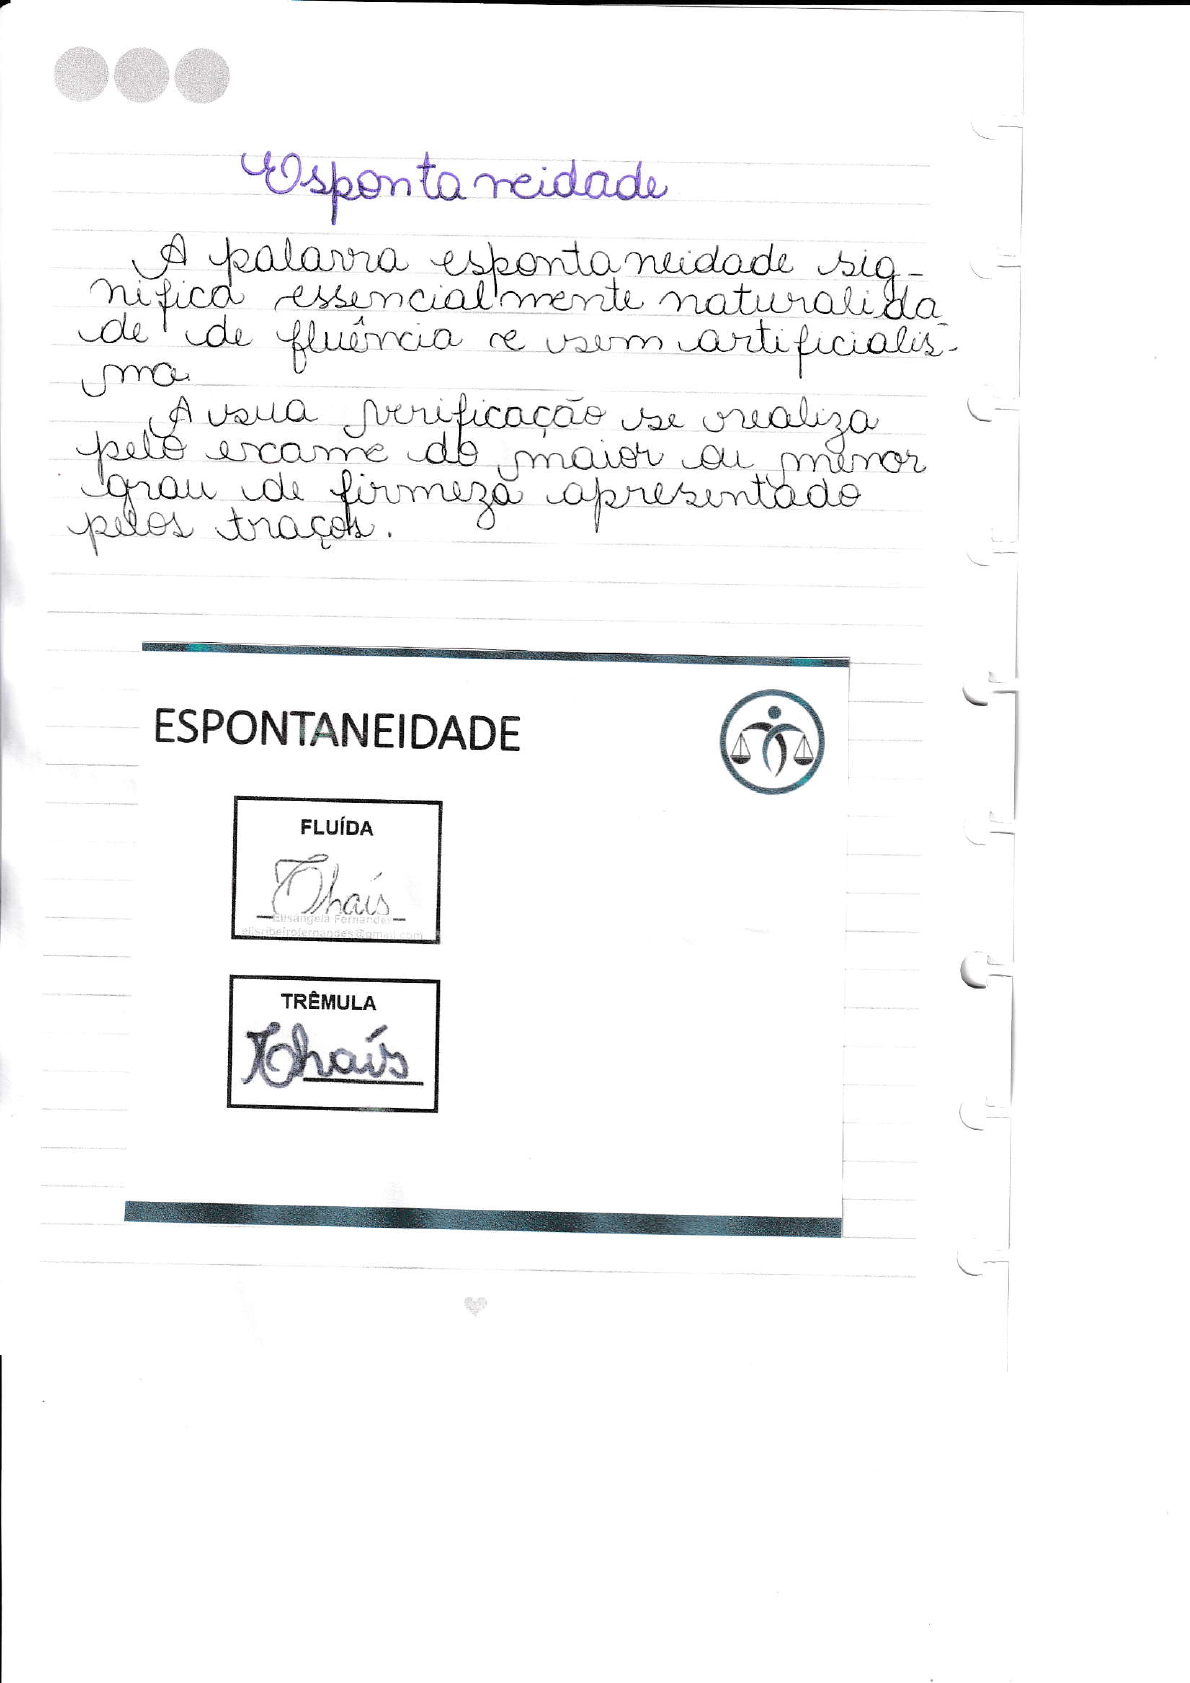 Espontaneidade
A palavra espontaneidade sig-
nifica essencialmente naturalida-
de de fluência e sem artificialis-
mo.
A sua verificação se realiza
pelo exame do maior ou menor
grau de firmeza apresentado
pelos traços.
ESPONTANEIDADE
FLUÍDA
Thaís
Elisangela Fernandes
elisribeirofernandes@gmail.com
TRÊMULA
Thaís